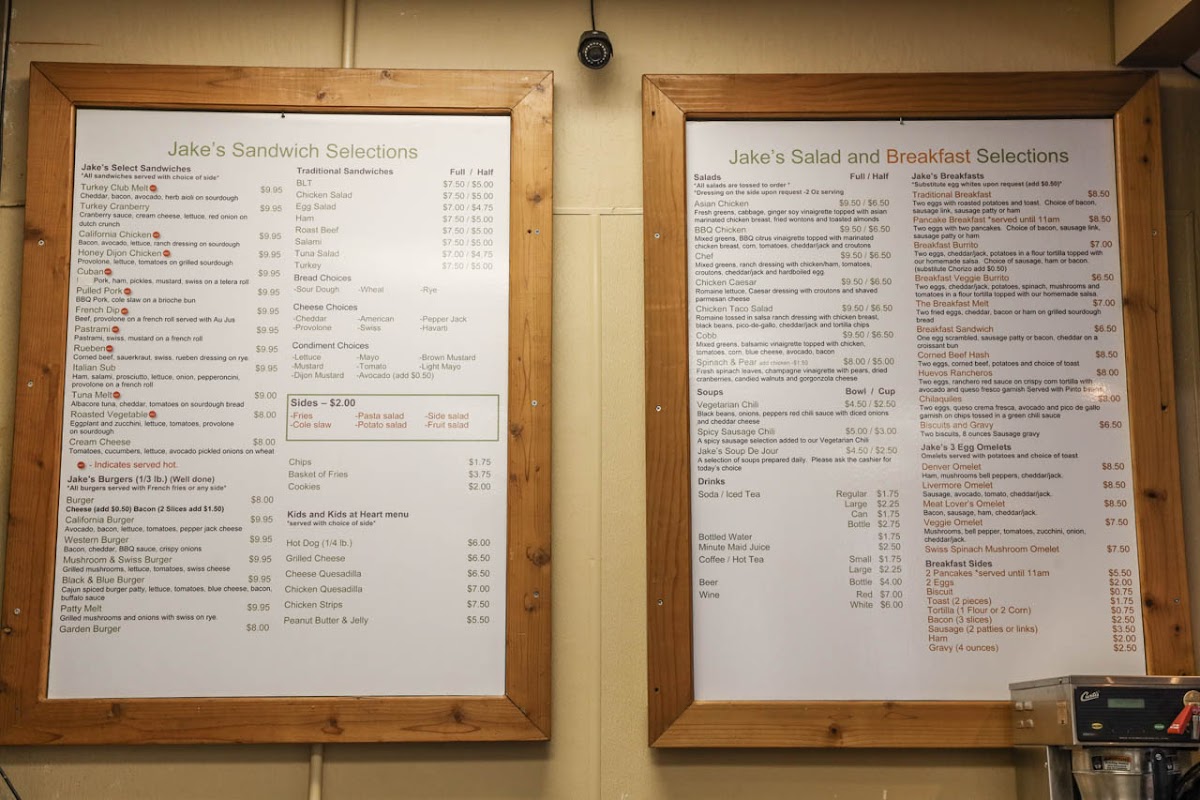 Jake's Sandwich Selections
Jake's Select Sandwiches
*All sandwiches served with choice of side*
Turkey Club Melt $9.95
Cheddar, bacon, avocado, herb aioli on sourdough
Turkey Cranberry $9.95
Cranberry sauce, cream cheese, lettuce, red onion on
dutch crunch
California Chicken $9.95
Bacon, avocado, lettuce, ranch dressing on sourdough
Honey Dijon Chicken $9.95
Provolone, lettuce, tomatoes on grilled sourdough
Cuban $9.95
Pork, ham, pickles, mustard, swiss on a telera roll
Pulled Pork $9.95
BBQ Pork, cole slaw on a brioche bun
French Dip $9.95
Beef, provolone on a french roll served with Au Jus
Pastrami $9.95
Pastrami, swiss, mustard on a french roll
Rueben $9.95
Corned beef, sauerkraut, swiss, rueben dressing on rye.
Italian Sub $9.95
Ham, salami, prosciutto, lettuce, onion, pepperoncini,
provolone on a french roll
Tuna Melt $9.00
Albacore tuna, cheddar, tomatoes on sourdough bread
Roasted Vegetable $8.00
Eggplant and zucchini, lettuce, tomatoes, provolone
on sourdough
Cream Cheese $8.00
Tomatoes, cucumbers, lettuce, avocado pickled onions on wheat
- Indicates served hot.
Jake's Burgers (1/3 lb.) (Well done)
*All burgers served with French fries or any side*
Burger $8.00
Cheese (add $0.50) Bacon (2 Slices add $1.50)
California Burger $9.95
Avocado, bacon, lettuce, tomatoes, pepper jack cheese
Western Burger $9.95
Bacon, cheddar, BBQ sauce, crispy onions
Mushroom & Swiss Burger $9.95
Grilled mushrooms, lettuce, tomatoes, swiss cheese
Black & Blue Burger $9.95
Cajun spiced burger patty, lettuce, tomatoes, blue cheese, bacon,
buffalo sauce
Patty Melt $9.95
Grilled mushrooms and onions with swiss on rye.
Garden Burger $8.00
Traditional Sandwiches Full / Half
BLT $7.50 / $5.00
Chicken Salad $7.50 / $5.00
Egg Salad $7.00 / $4.75
Ham $7.50 / $5.00
Roast Beef $7.50 / $5.00
Salami $7.50 / $5.00
Tuna Salad $7.00 / $4.75
Turkey $7.50 / $5.00
Bread Choices
-Sour Dough -Wheat -Rye
Cheese Choices
-Cheddar -American -Pepper Jack
-Provolone -Swiss -Havarti
Condiment Choices
-Lettuce -Mayo -Brown Mustard
-Mustard -Tomato -Light Mayo
-Dijon Mustard -Avocado (add $0.50)
Sides – $2.00
-Fries -Pasta salad -Side salad
-Cole slaw -Potato salad -Fruit salad
Chips $1.75
Basket of Fries $3.75
Cookies $2.00
Kids and Kids at Heart menu
*served with choice of side*
Hot Dog (1/4 lb.) $6.00
Grilled Cheese $6.50
Cheese Quesadilla $6.50
Chicken Quesadilla $7.00
Chicken Strips $7.50
Peanut Butter & Jelly $5.50
Jake's Salad and Breakfast Selections
Salads Full / Half
*All salads are tossed to order*
*Dressing on the side upon request -2 Oz serving
Asian Chicken $9.50 / $6.50
Fresh greens, cabbage, ginger soy vinaigrette topped with asian
marinated chicken breast, fried wontons and toasted almonds
BBQ Chicken $9.50 / $6.50
Mixed greens, BBQ citrus vinaigrette topped with marinated
chicken breast, corn, tomatoes, cheddar/jack and croutons
Chef $9.50 / $6.50
Mixed greens, ranch dressing with chicken/ham, tomatoes,
croutons, cheddar/jack and hardboiled egg.
Chicken Caesar $9.50 / $6.50
Romaine lettuce, Caesar dressing with croutons and shaved
parmesan cheese
Chicken Taco Salad $9.50 / $6.50
Romaine tossed in salsa ranch dressing with chicken breast,
black beans, pico-de-gallo, cheddar/jack and tortilla chips
Cobb $9.50 / $6.50
Mixed greens, balsamic vinaigrette topped with chicken,
tomatoes, corn, blue cheese, avocado, bacon
Spinach & Pear add chicken -$1.50 $8.00 / $5.00
Fresh spinach leaves, champagne vinaigrette with pears, dried
cranberries, candied walnuts and gorgonzola cheese
Soups Bowl / Cup
Vegetarian Chili $4.50 / $2.50
Black beans, onions, peppers red chili sauce with diced onions
and cheddar cheese
Spicy Sausage Chili $5.00 / $3.00
A spicy sausage selection added to our Vegetarian Chili
Jake's Soup De Jour $4.50 / $2.50
A selection of soups prepared daily. Please ask the cashier for
today's choice
Drinks
Soda / Iced Tea Regular $1.75
Large $2.25
Can $1.75
Bottle $2.75
Bottled Water $1.75
Minute Maid Juice $2.50
Coffee / Hot Tea Small $1.75
Large $2.25
Beer Bottle $4.00
Wine Red $7.00
White $6.00
Jake's Breakfasts
*Substitute egg whites upon request (add $0.50)*
Traditional Breakfast $8.50
Two eggs with roasted potatoes and toast. Choice of bacon,
sausage link, sausage patty or ham
Pancake Breakfast *served until 11am $8.50
Two eggs with two pancakes. Choice of bacon, sausage link,
sausage patty or ham
Breakfast Burrito $7.00
Two eggs, cheddar/jack, potatoes in a flour tortilla topped with
our homemade salsa. Choice of sausage, ham or bacon.
(substitute Chorizo add $0.50)
Breakfast Veggie Burrito $6.50
Two eggs, cheddar/jack, potatoes, spinach, mushrooms and
tomatoes in a flour tortilla topped with our homemade salsa.
The Breakfast Melt $7.00
Two fried eggs, cheddar, bacon or ham on grilled sourdough
bread
Breakfast Sandwich $6.50
One egg scrambled, sausage patty or bacon, cheddar on a
croissant bun
Corned Beef Hash $8.50
Two eggs, corned beef, potatoes and choice of toast
Huevos Rancheros $8.00
Two eggs, ranchero red sauce on crispy corn tortilla with
avocado and queso fresco garnish Served with Pinto
Chilaquiles $8.00
Two eggs, queso crema fresca, avocado and pico de gallo
garnish on chips tossed in a green chili sauce
Biscuits and Gravy $6.50
Two biscuits, 6 ounces Sausage gravy
Jake's 3 Egg Omelets
Omelets served with potatoes and choice of toast
Denver Omelet $8.50
Ham, mushrooms bell peppers, cheddar/jack.
Livermore Omelet $8.50
Sausage, avocado, tomato, cheddar/jack.
Meat Lover's Omelet $8.50
Bacon, sausage, ham, cheddar/jack.
Veggie Omelet $7.50
Mushrooms, bell pepper, tomatoes, zucchini, onion,
cheddar/jack.
Swiss Spinach Mushroom Omelet $7.50
Breakfast Sides
2 Pancakes *served until 11am $5.50
2 Eggs $2.00
Biscuit $0.75
Toast (2 pieces) $1.75
Tortilla (1 Flour or 2 Corn) $0.75
Bacon (3 slices) $2.50
Sausage (2 patties or links) $3.50
Ham $2.00
Gravy (4 ounces) $2.50
Curtis